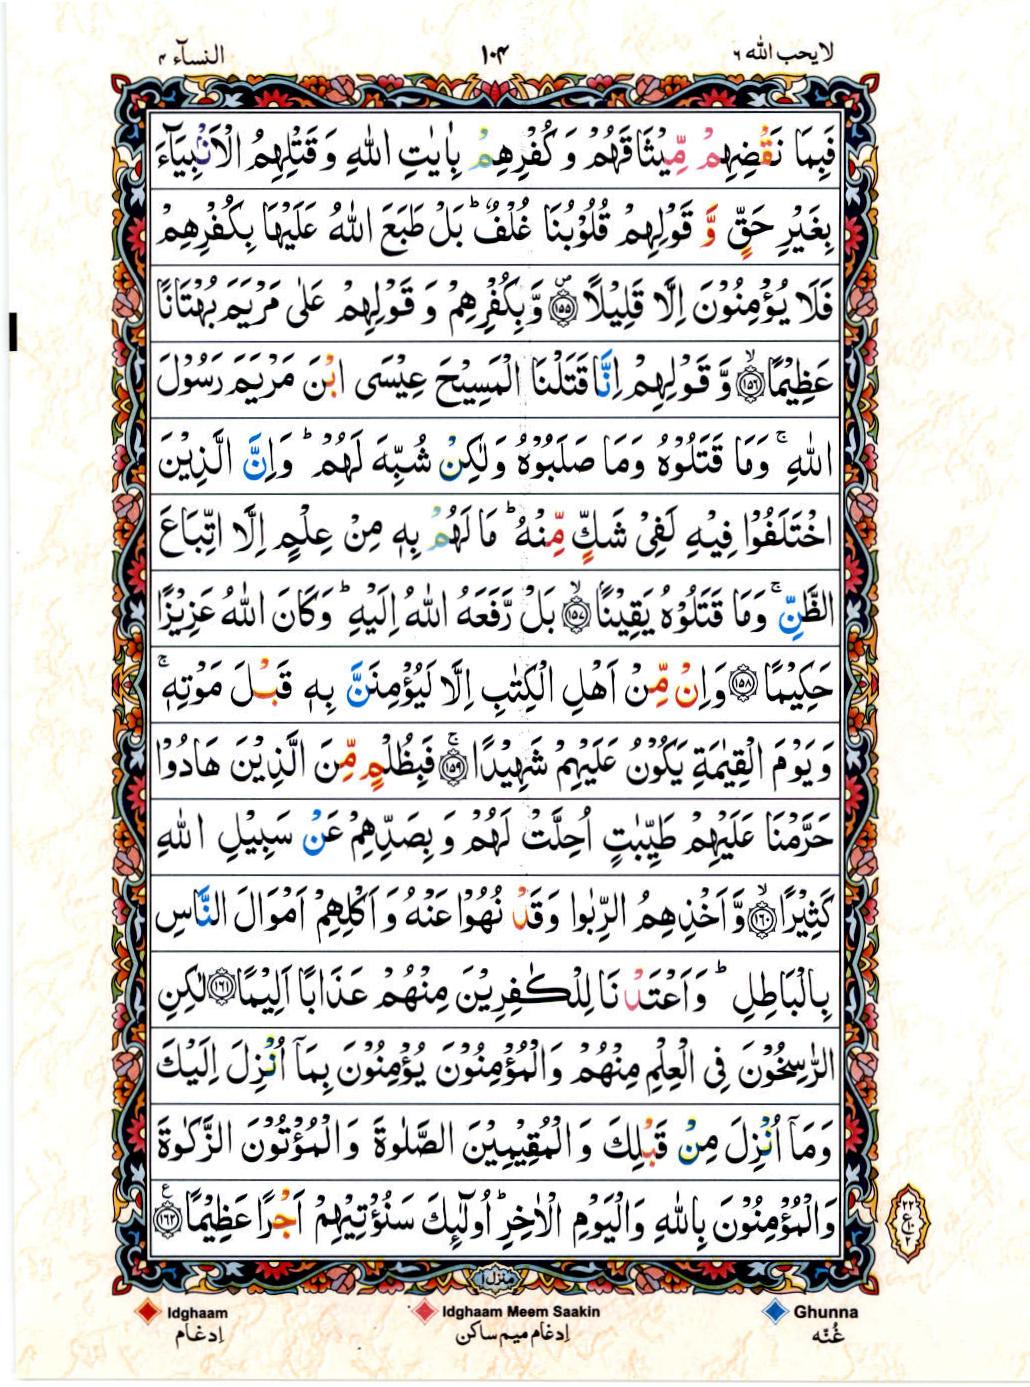 لا يحب الله ٦
١٠٤
النسآء ٤
فَبِمَا نَقْضِهِمْ مِّيْثَاقَهُمْ وَ كُفْرِهِمْ بِاٰيٰتِ اللّٰهِ وَ قَتْلِهِمُ الْاَنْۢبِيَآءَ
بِغَيْرِ حَقٍّ وَّ قَوْلِهِمْ قُلُوْبُنَا غُلْفٌ ؕ بَلْ طَبَعَ اللّٰهُ عَلَيْهَا بِكُفْرِهِمْ
فَلَا يُؤْمِنُوْنَ اِلَّا قَلِيْلًا ۪﴿١٥٥﴾ وَّ بِكُفْرِهِمْ وَ قَوْلِهِمْ عَلٰى مَرْيَمَ بُهْتَانًا
عَظِيْمًا ۙ﴿١٥٦﴾ وَّ قَوْلِهِمْ اِنَّا قَتَلْنَا الْمَسِيْحَ عِيْسَى ابْنَ مَرْيَمَ رَسُوْلَ
اللّٰهِ ۚ وَمَا قَتَلُوْهُ وَمَا صَلَبُوْهُ وَلٰكِنْ شُبِّهَ لَهُمْ ؕ وَاِنَّ الَّذِيْنَ
اخْتَلَفُوْا فِيْهِ لَفِىْ شَكٍّ مِّنْهُ ؕ مَا لَهُمْ بِهٖ مِنْ عِلْمٍ اِلَّا اتِّبَاعَ
الظَّنِّ ۚ وَمَا قَتَلُوْهُ يَقِيْنًا ۙ﴿١٥٧﴾ بَلْ رَّفَعَهُ اللّٰهُ اِلَيْهِ ؕ وَكَانَ اللّٰهُ عَزِيْزًا
حَكِيْمًا ﴿١٥٨﴾ وَاِنْ مِّنْ اَهْلِ الْكِتٰبِ اِلَّا لَيُؤْمِنَنَّ بِهٖ قَبْلَ مَوْتِهٖ ۚ
وَيَوْمَ الْقِيٰمَةِ يَكُوْنُ عَلَيْهِمْ شَهِيْدًا ۚ﴿١٥٩﴾ فَبِظُلْمٍ مِّنَ الَّذِيْنَ هَادُوْا
حَرَّمْنَا عَلَيْهِمْ طَيِّبٰتٍ اُحِلَّتْ لَهُمْ وَ بِصَدِّهِمْ عَنْ سَبِيْلِ اللّٰهِ
كَثِيْرًا ۙ﴿١٦٠﴾ وَّ اَخْذِهِمُ الرِّبٰوا وَقَدْ نُهُوْا عَنْهُ وَ اَكْلِهِمْ اَمْوَالَ النَّاسِ
بِالْبَاطِلِ ؕ وَ اَعْتَدْنَا لِلْكٰفِرِيْنَ مِنْهُمْ عَذَابًا اَلِيْمًا ﴿١٦١﴾ لٰكِنِ
الرّٰسِخُوْنَ فِى الْعِلْمِ مِنْهُمْ وَالْمُؤْمِنُوْنَ يُؤْمِنُوْنَ بِمَاۤ اُنْزِلَ اِلَيْكَ
وَمَاۤ اُنْزِلَ مِنْ قَبْلِكَ وَ الْمُقِيْمِيْنَ الصَّلٰوةَ وَ الْمُؤْتُوْنَ الزَّكٰوةَ
وَالْمُؤْمِنُوْنَ بِاللّٰهِ وَالْيَوْمِ الْاٰخِرِ ؕ اُولٰٓئِكَ سَنُؤْتِيْهِمْ اَجْرًا عَظِيْمًا ﴿١٦٢﴾ ع
٢٢
ع١٠
٢
منزل ١
Idghaam
Idghaam Meem Saakin
Ghunna
اِدغام
اِدغام میم ساکن
غُنّه